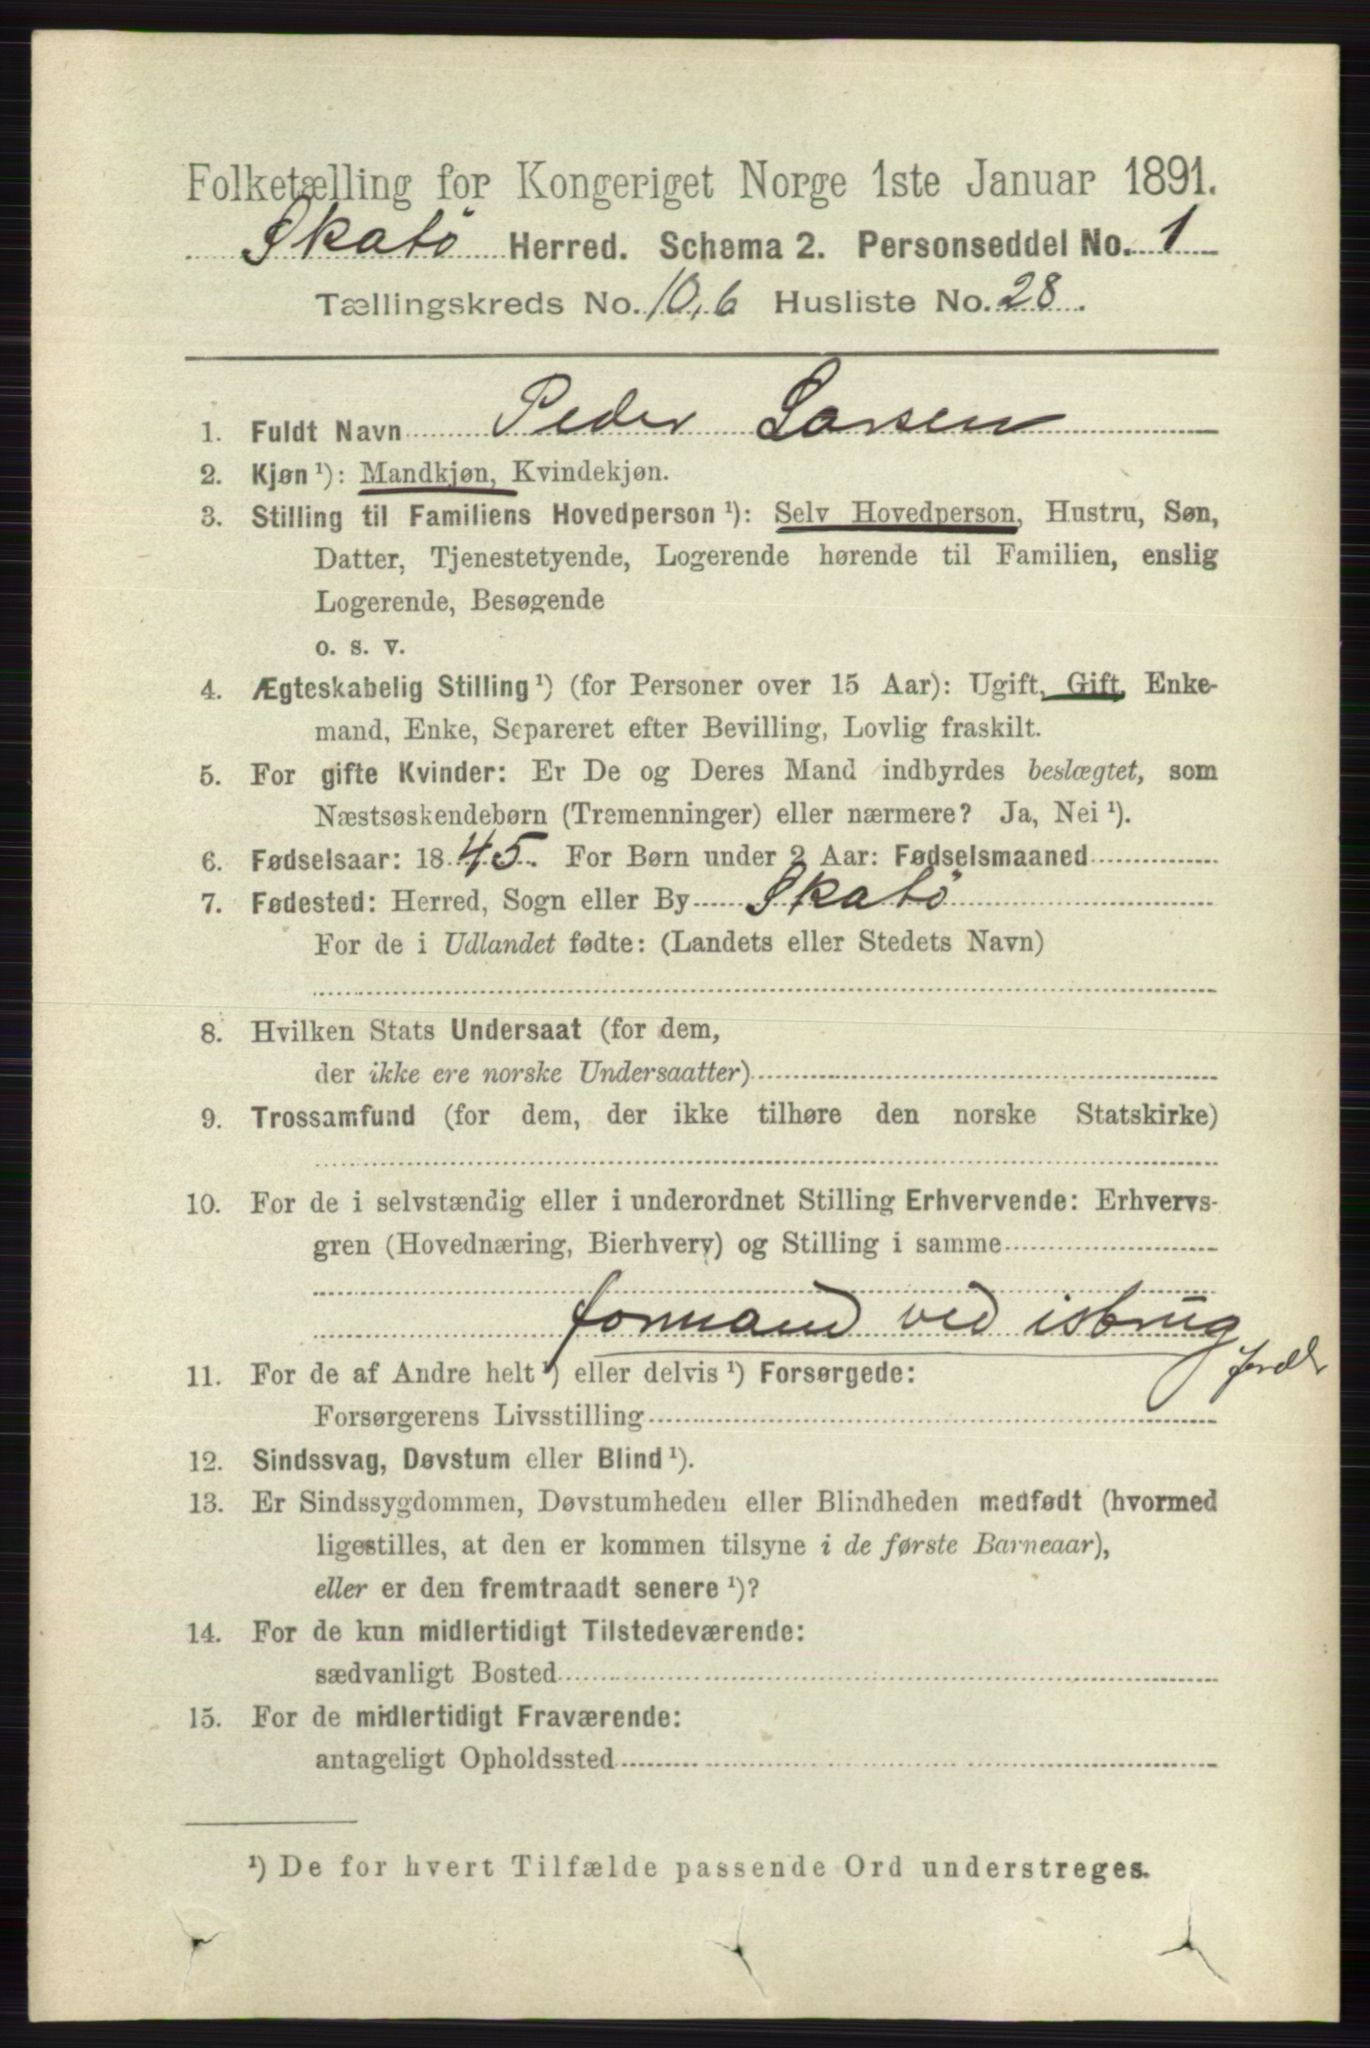 Folketælling for Kongeriget Norge 1ste Januar 1891.
Skatö Herred. Schema 2. Personseddel No. 1
Tællingskreds No. 10,6 Husliste No. 28.
1. Fuldt Navn Peder Larsen
2. Kjøn ¹): Mandkjøn, Kvindekjøn.
3. Stilling til Familiens Hovedperson ¹): Selv Hovedperson, Hustru, Søn,
Datter, Tjenestetyende, Logerende hørende til Familien, enslig
Logerende, Besøgende
o. s. v.
4. Ægteskabelig Stilling ¹) (for Personer over 15 Aar): Ugift, Gift, Enke-
mand, Enke, Separeret efter Bevilling, Lovlig fraskilt.
5. For gifte Kvinder: Er De og Deres Mand indbyrdes beslægtet, som
Næstsøskendebørn (Tremenninger) eller nærmere? Ja, Nei ¹).
6. Fødselsaar: 1845. For Børn under 2 Aar: Fødselsmaaned
7. Fødested: Herred, Sogn eller By Skatö
For de i Udlandet fødte: (Landets eller Stedets Navn)
8. Hvilken Stats Undersaat (for dem,
der ikke ere norske Undersaatter)
9. Trossamfund (for dem, der ikke tilhøre den norske Statskirke)
10. For de i selvstændig eller i underordnet Stilling Erhvervende: Erhvervs-
gren (Hovednæring, Bierhverv) og Stilling i samme
formand ved isbrug
11. For de af Andre helt ¹) eller delvis ¹) Forsørgede:
Forsørgerens Livsstilling
12. Sindssvag, Døvstum eller Blind ¹).
13. Er Sindssygdommen, Døvstumheden eller Blindheden medfødt (hvormed
ligestilles, at den er kommen tilsyne i de første Barneaar),
eller er den fremtraadt senere ¹)?
14. For de kun midlertidigt Tilstedeværende:
sædvanligt Bosted
15. For de midlertidigt Fraværende:
antageligt Opholdssted
¹) De for hvert Tilfælde passende Ord understreges.